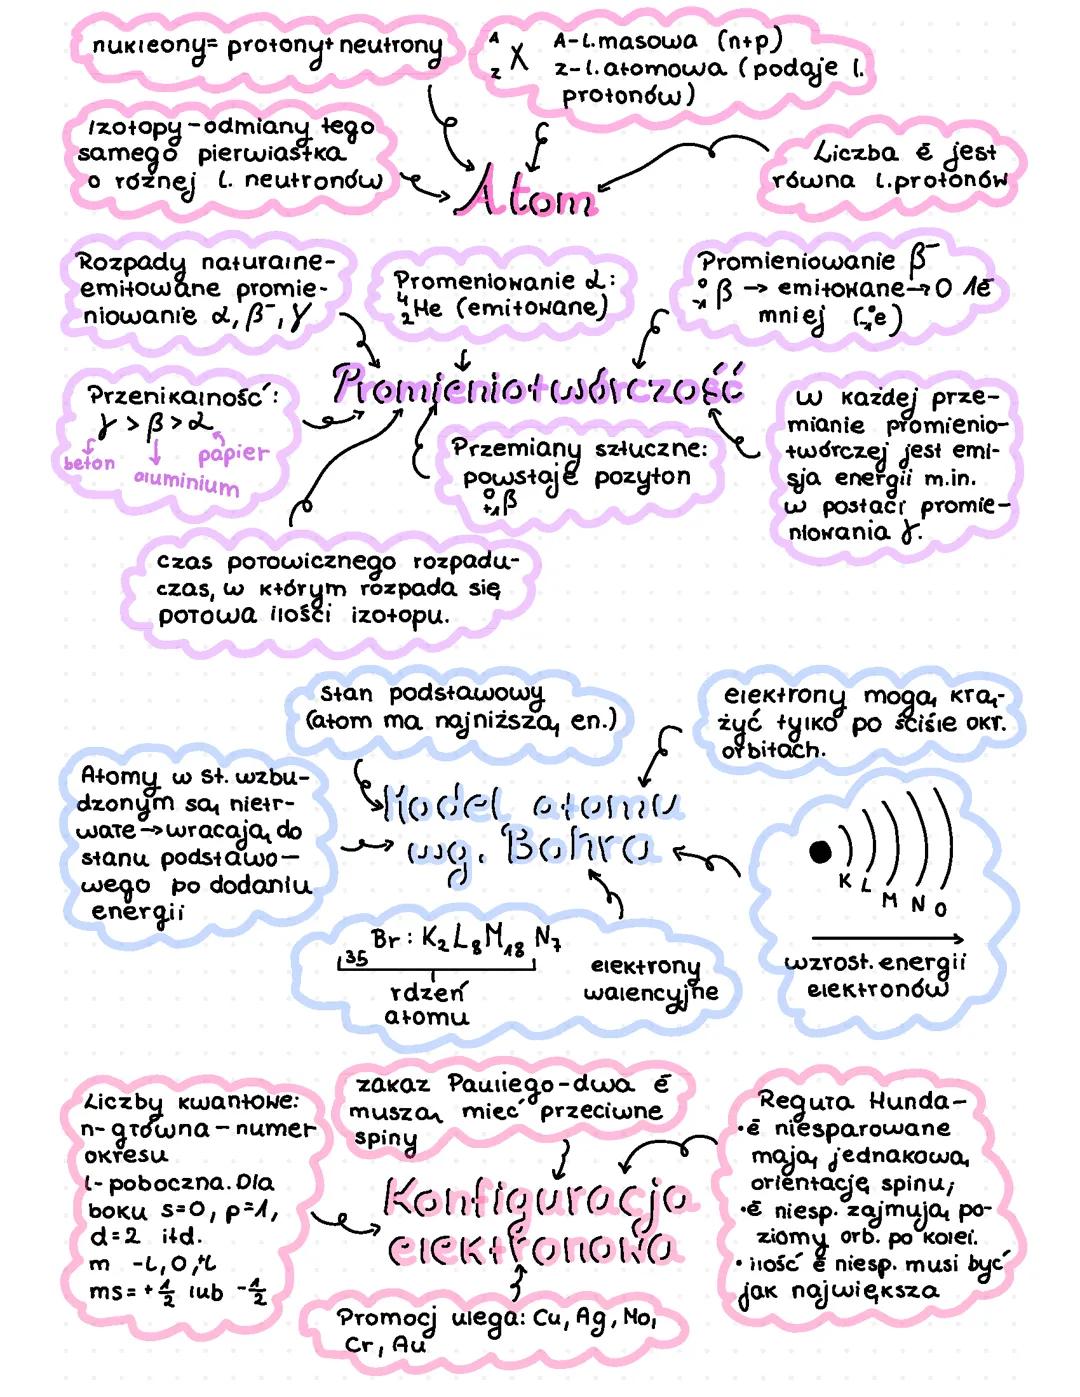 nukleony= protony+neutrony
A
Z X A-l.masowa (n+p)
z-l.atomowa (podaje l.
protonów)
Izotopy-odmiany tego
samego pierwiastka
o różnej l. neutronów
Liczba ē jest
równa l.protonów
Atom
Rozpady naturalne-
emitowane promie-
niowanie α, β⁻, γ
Promeniowanie α:
⁴₂He (emitowane)
Promieniowanie β⁻
⁰₋₁β → emitowane→0 1ē
mniej (⁰₋₁e)
Promieniotwórczość
Przenikalność:
γ > β > α
beton
papier
aluminium
Przemiany sztuczne:
powstaje pozyton
⁰₊₁β
w każdej prze-
mianie promienio-
twórczej jest emi-
sja energii m.in.
w postaci promie-
niowania γ.
czas połowicznego rozpadu-
czas, w którym rozpada się
połowa ilości izotopu.
stan podstawowy
(atom ma najniższą en.)
elektrony mogą krą-
żyć tylko po ściśle okr.
orbitach.
Atomy w st. wzbu-
dzonym są nietr-
wałe→wracają do
stanu podstawo-
wego po dodaniu
energii
Model atomu
wg. Bohra
K L M N O
wzrost. energii
elektronów
₃₅Br: K₂L₈M₁₈ N₇
rdzeń
atomu
elektrony
walencyjne
Liczby kwantowe:
n- główna-numer
okresu
l- poboczna. Dla
boku s=0, p=1,
d=2 itd.
m -l,0,+l
ms= +½ lub -½
zakaz Pauliego-dwa ē
muszą mieć przeciwne
spiny
Reguła Hunda-
•ē niesparowane
mają jednakową
orientację spinu;
•ē niesp. zajmują po-
ziomy orb. po kolei.
• ilość ē niesp. musi być
jak największa
Konfiguracja
elektronowa
Promocj ulega: Cu, Ag, Mo,
Cr, Au